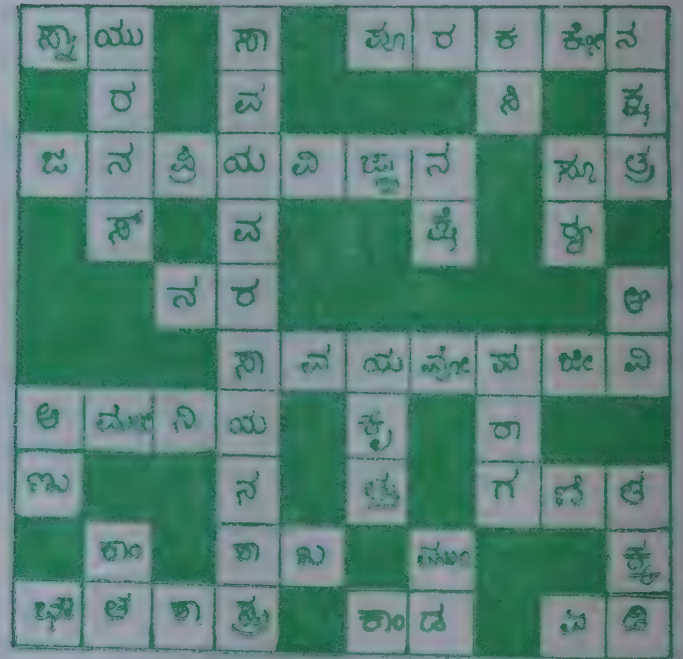 ಸ್ನಾ ಯು ಸಾ ಪೂ ರ ಕ ಕೋ ನ
ರ ವ ಸಿ ಕ್ಷ
ಜ ನ ಪ್ರಿ ಯ ವಿ ಜ್ಞಾ ನ ಸೂ ತ್ರ
ಸ್ ವ ಕ್ಷೆ ರ್ಯ
ನ ರ
ಸಾ ವ ಯ ವೋ ಪ ಜೀ ವಿ
ಅ ಮೋ ನಿ ಯ ಕೃ ರಾ
ಣು ನ ತ್ತು ಗ ಣಿ ತ
ಕಾಂ ಶಾ ಖ ಕ್ಕ
ಭೌ ತ ಶಾ ಸ್ತ್ರ ಕಾಂ ಡ ಡಿ